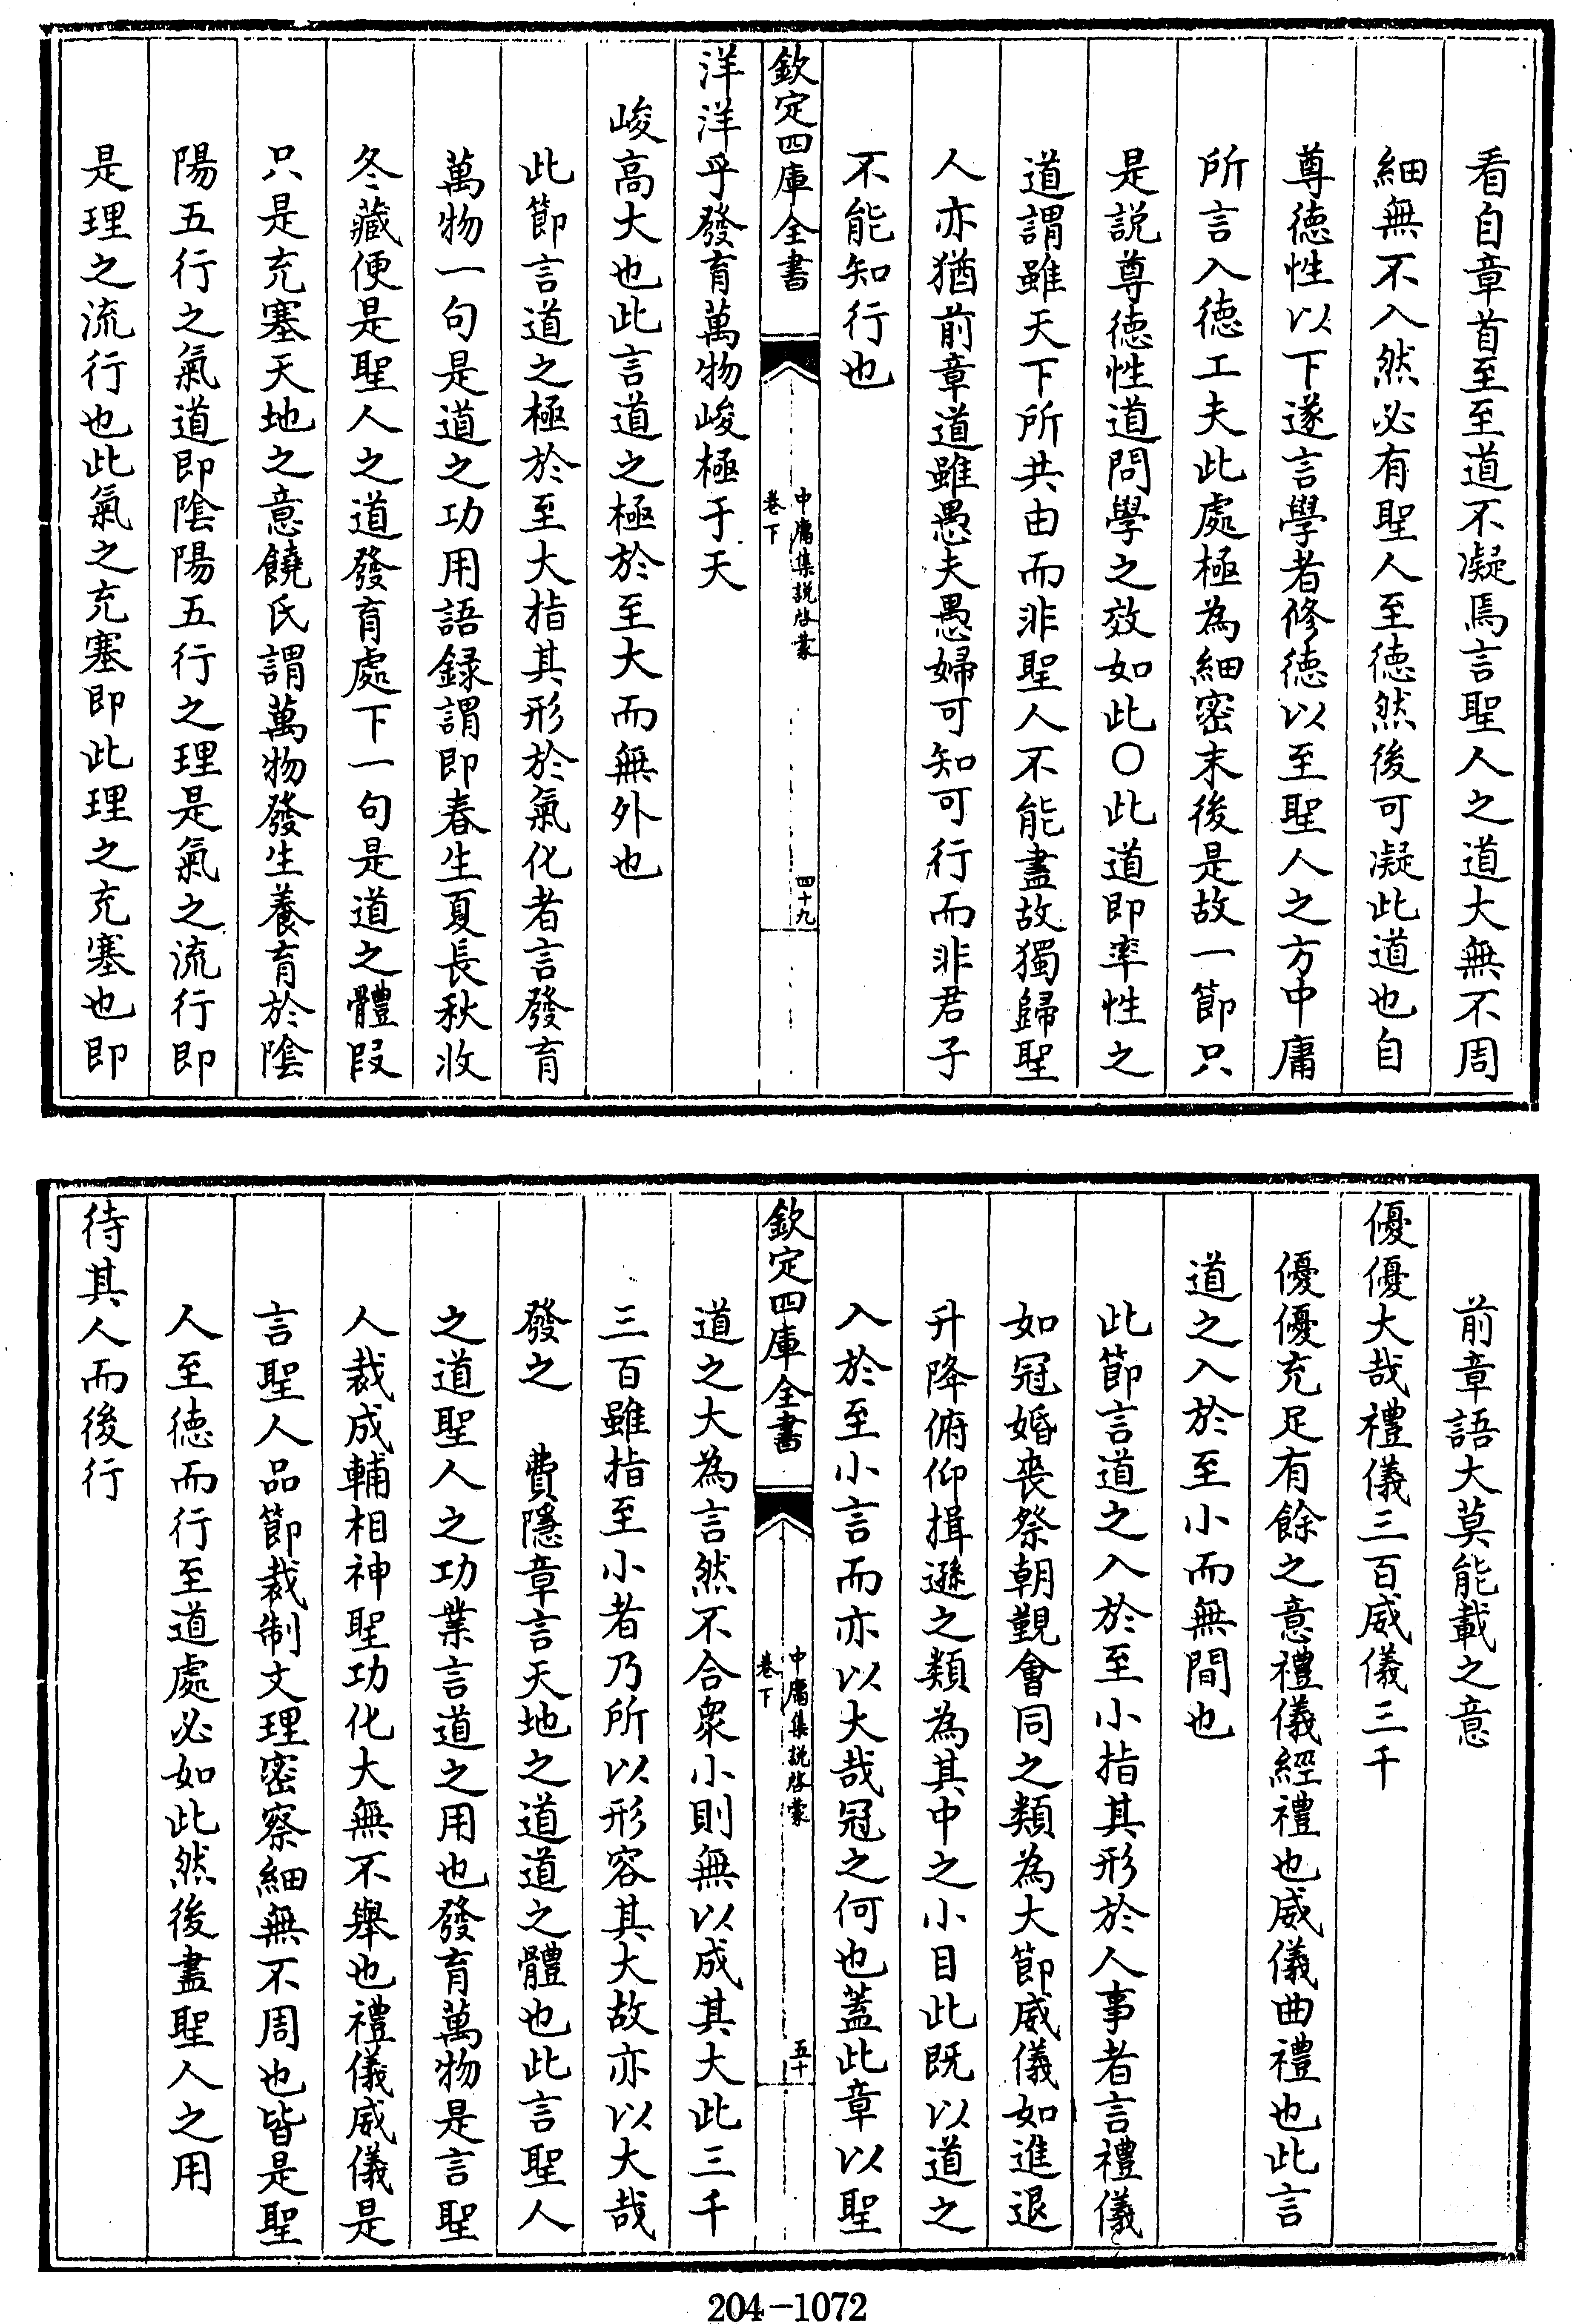 看自章首至至道不凝焉言聖人之道大無不周
細無不入然必有聖人至徳然後可凝此道也自
尊徳性以下遂言學者修徳以至聖人之方中庸
所言入徳工夫此處極為細密末後是故一節只
是説尊徳性道問學之效如此○此道即率性之
道謂雖天下所共由而非聖人不能盡故獨歸聖
人亦猶前章道雖愚夫愚婦可知可行而非君子
不能知行也
欽定四庫全書
中庸集説啓蒙
卷下
四十九
洋洋乎發育萬物峻極于天
峻高大也此言道之極於至大而無外也
此節言道之極於至大指其形於氣化者言發育
萬物一句是道之功用語録謂即春生夏長秋收
冬藏便是聖人之道發育處下一句是道之體段
只是充塞天地之意饒氏謂萬物發生養育於陰
陽五行之氣道即陰陽五行之理是氣之流行即
是理之流行也此氣之充塞即此理之充塞也即
前章語大莫能載之意
優優大哉禮儀三百威儀三千
優優充足有餘之意禮儀經禮也威儀曲禮也此言
道之入於至小而無間也
此節言道之入於至小指其形於人事者言禮儀
如冠婚喪祭朝覲會同之類為大節威儀如進退
升降俯仰揖遜之類為其中之小目此既以道之
入於至小言而亦以大哉冠之何也蓋此章以聖
欽定四庫全書
中庸集説啓蒙
卷下
五十
道之大為言然不合衆小則無以成其大此三千
三百雖指至小者乃所以形容其大故亦以大哉
發之　費隱章言天地之道道之體也此言聖人
之道聖人之功業言道之用也發育萬物是言聖
人裁成輔相神聖功化大無不舉也禮儀威儀是
言聖人品節裁制文理密察細無不周也皆是聖
人至徳而行至道處必如此然後盡聖人之用
待其人而後行
204-1072